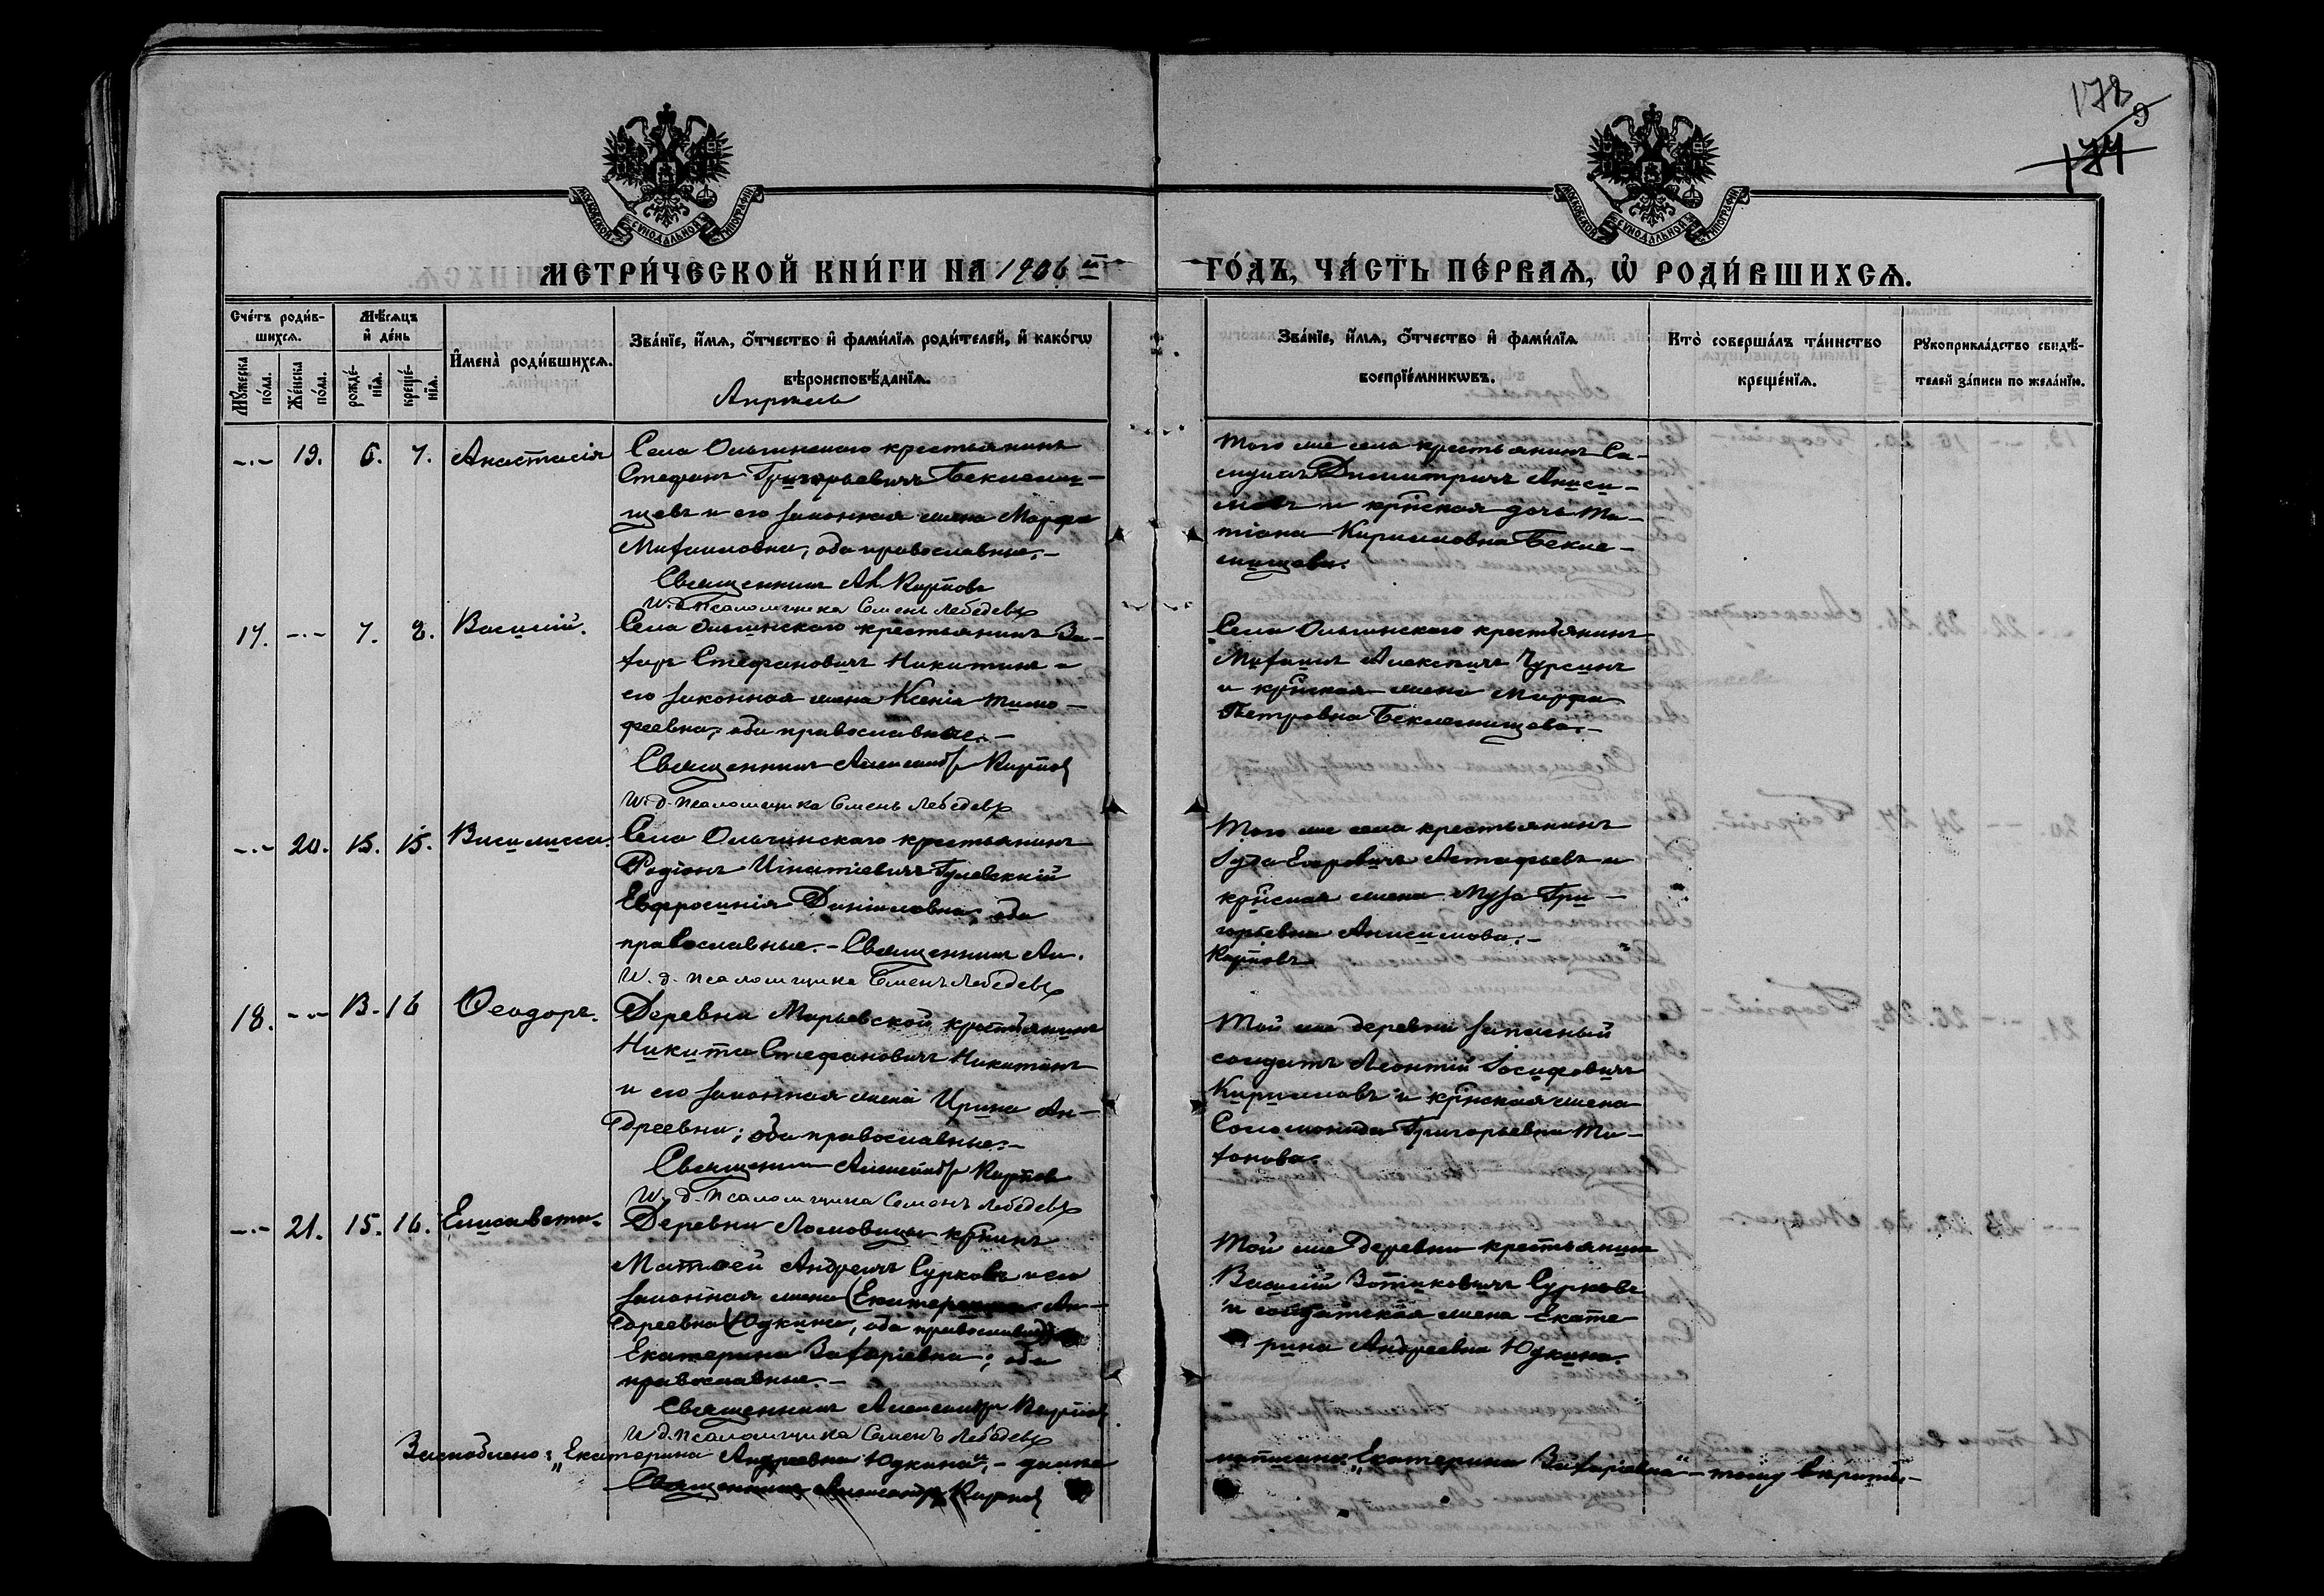 178
9
174
МОСКОВСКОЙ СѴНОДАЛЬНОЙ ТИПОГРАФІИ
МОСКОВСКОЙ СѴНОДАЛЬНОЙ ТИПОГРАФІИ
МЕТРИ́ЧЕСКОЙ КНИ́ГИ НА 1906 й
ГО́ДЪ, ЧА́СТЬ ПЕ́РВАѦ, Ѡ҆ РОДИ́ВШИХСѦ.
Сче́тъ роди́в-
шихсѧ.
Мꙋ́жеска по́ла.
Же́нска по́ла.
Мѣ́сѧцъ
и҆ де́нь
рожде́-
нїѧ.
креще́-
нїѧ.
И҆мена̀ роди́вшихсѧ.
Зва́нїе, и҆́мѧ, ѻ҆́тчество и҆ фами́лїѧ роди́телей, и҆ како́гѡ
вѣроисповѣ́данїѧ.
Зва́нїе, и҆́мѧ, ѻ҆́тчество и҆ фами́лїѧ
воспрїе́мникѡвъ.
Кто̀ соверша́лъ та́инство
креще́нїѧ.
Рꙋкоприкла́дство свидѣ́-
телей за́писи по жела́нїю.
Апрель
-"- 19. 6. 7. Анастасія
Села Ольгинскаго крестьянинъ
Стефанъ Григорьевичъ Беклеми-
щевъ и его законная жена Марфа
Михаиловна, оба православные.-
Священникъ Ал. Карповъ
И. д. псаломщика Семенъ Лебедевъ
Того же села крестьянинъ Са-
муилъ Димитріевъ Аниси-
мовъ и кр̃нская дочь Та-
тіана Кирилловна Бекле-
мищева.
17. -"- 7. 8. Василій.
Села Ольгинскаго крестьянинъ За-
харъ Стефановичъ Никитинъ и
его законная жена Ксенія Тимо-
феевна, оба православные.-
Священникъ Александръ Карповъ
И. д. псаломщика Семенъ Лебедевъ
Села Ольгинскаго крестьянинъ
Михаилъ Алексѣевичъ Чурсинъ
и кр̃нская жена Марфа
Петровна Беклемищева.-
-"- 20. 13. 15. Василисса.
Села Ольгинскаго крестьянинъ
Родіонъ Игнатіевичъ Гулевскій
Евфросинія Даніиловна, оба
православные.- Священникъ Ал.
И. д. псаломщика Семенъ Лебедевъ
Того же села крестьянинъ
Іуда Егоровичъ Астафьевъ и
кр̃нская жена Муза Гри-
горьевна Анисимова.-
Карповъ
18. -"- 13. 16 Ѳеодоръ.
Деревни Марьевской крестьянинъ
Никита Стефановичъ Никитинъ
и его законная жена Ирина Ан-
дреевна; оба православные.-
Священникъ Александръ Карповъ
И. д. псаломщика Семенъ Лебедевъ
Той же деревни запасный
солдатъ Леонтій Іосифовичъ
Кирилловъ и кр̃нская жена
Соломонида Григорьевна Ти-
хонова.
-"- 21. 15. 16. Елисавета.
Деревни Ломовицы кр̃нинъ
Матвей Андреевъ Сурковъ и его
законная жена (Екатерина Ан-
дреевна Юдкина, оба православные)
Екатерина Захаріевна; оба
православные.-
Священникъ Александръ Карповъ
И. д. псаломщика Семенъ Лебедевъ
Той же деревни крестьянинъ
Василій Зотиковичъ Сурковъ
и солдатская жена Екате-
рина Андреевна Юдкина.
Заскоблено: "Екатерина Андреевна Юдкина",- далѣе
написано "Екатерина Захаріевна"- тому вѣрить.-
Священникъ Александръ Карповъ